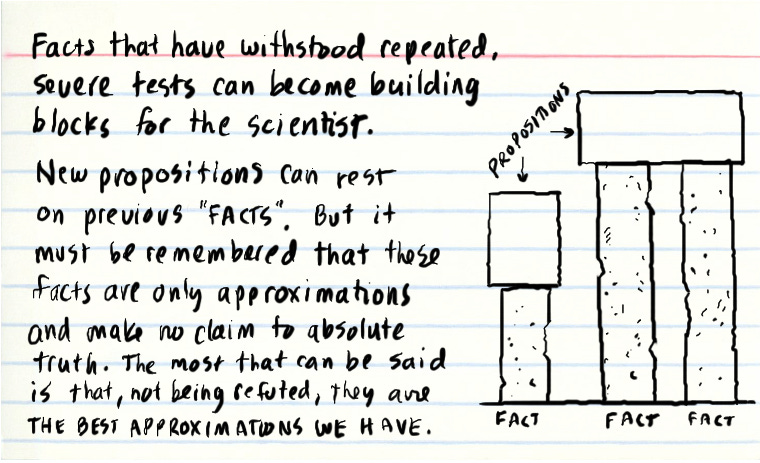 Facts that have withstood repeated,
severe tests can become building
blocks for the scientist.
New propositions can rest
on previous "FACTS". But it
must be remembered that these
facts are only approximations
and make no claim to absolute
truth. The most that can be said
is that, not being refuted, they are
THE BEST APPROXIMATIONS WE HAVE.
PROPOSITIONS
FACT
FACT
FACT